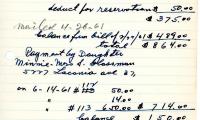 deduct for reservation $ 50.00
$ 375.00
mailed 4-28-61
balance for bill 4/27/61 $ 489.00
total $ 864.00
Payment by Daughter
Minnie - Mrs. S.
5777 Laconia ave
on 6-14-61 $
50.00
14.00
$ 113 650.00 $ 714.00
balance $ 150.00